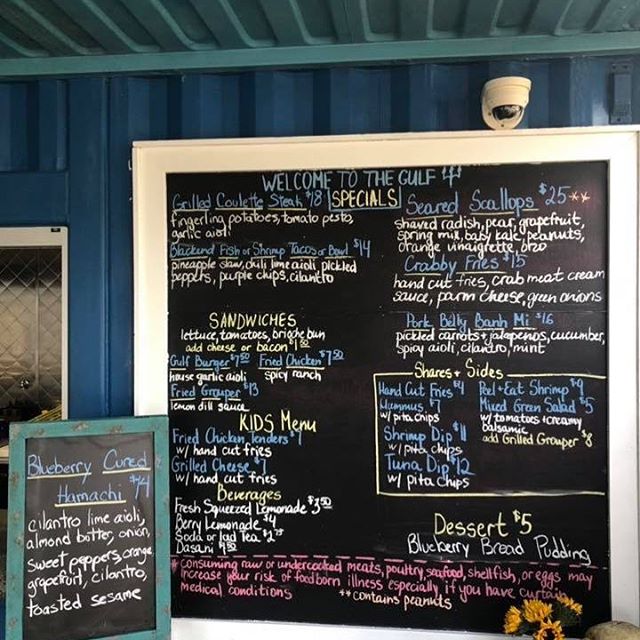 WELCOME TO THE GULF
SPECIALS
Grilled Coulette Steak $18
fingerling potatoes, tomato pesto,
garlic aioli
Blackend Fish or Shrimp Tacos or Bowl $14
pineapple slaw, chili lime aioli, pickled
peppers, purple chips, cilantro
Seared Scallops $25**
shaved radish, pear, grapefruit,
spring mix, baby kale, peanuts,
orange vinaigrette orzo
Crabby Fries $15
hand cut fries, crab meat cream
sauce, parm cheese, green onions
Pork Belly Banh Mi $16
pickled carrots + jalapenos, cucumber,
spicy aioli, cilantro, mint
SANDWICHES
lettuce, tomatoes, brioche bun
add cheese or bacon $1.50
Gulf Burger $7.50 Fried Chicken $7.50
house garlic aioli spicy ranch
Fried Grouper $13
lemon dill sauce
KIDS Menu
Fried Chicken Tenders $7
w/ hand cut fries
Grilled Cheese $7
w/ hand cut fries
Beverages
Fresh Squeezed Lemonade $3.50
Berry Lemonade $4
Soda or Iced Tea
Dasani
Shares + Sides
Hand Cut Fries $4
Hummus $7
w/ pita chips
Shrimp Dip $11
w/ pita chips
Tuna Dip $12
w/ pita chips
Peel + Eat Shrimp $9
Mixed Green Salad $5
w/ tomatoes + creamy
balsamic
add Grilled Grouper $8
Dessert $5
Blueberry Bread Pudding
* consuming raw or undercooked meats, poultry, seafood, shellfish, or eggs may
increase your risk of foodborn illness especially if you have certain
medical conditions
**contains peanuts
Blueberry Cured
Hamachi $14
cilantro lime aioli,
almond butter, onion,
sweet peppers, orange,
grapefruit, cilantro,
toasted sesame